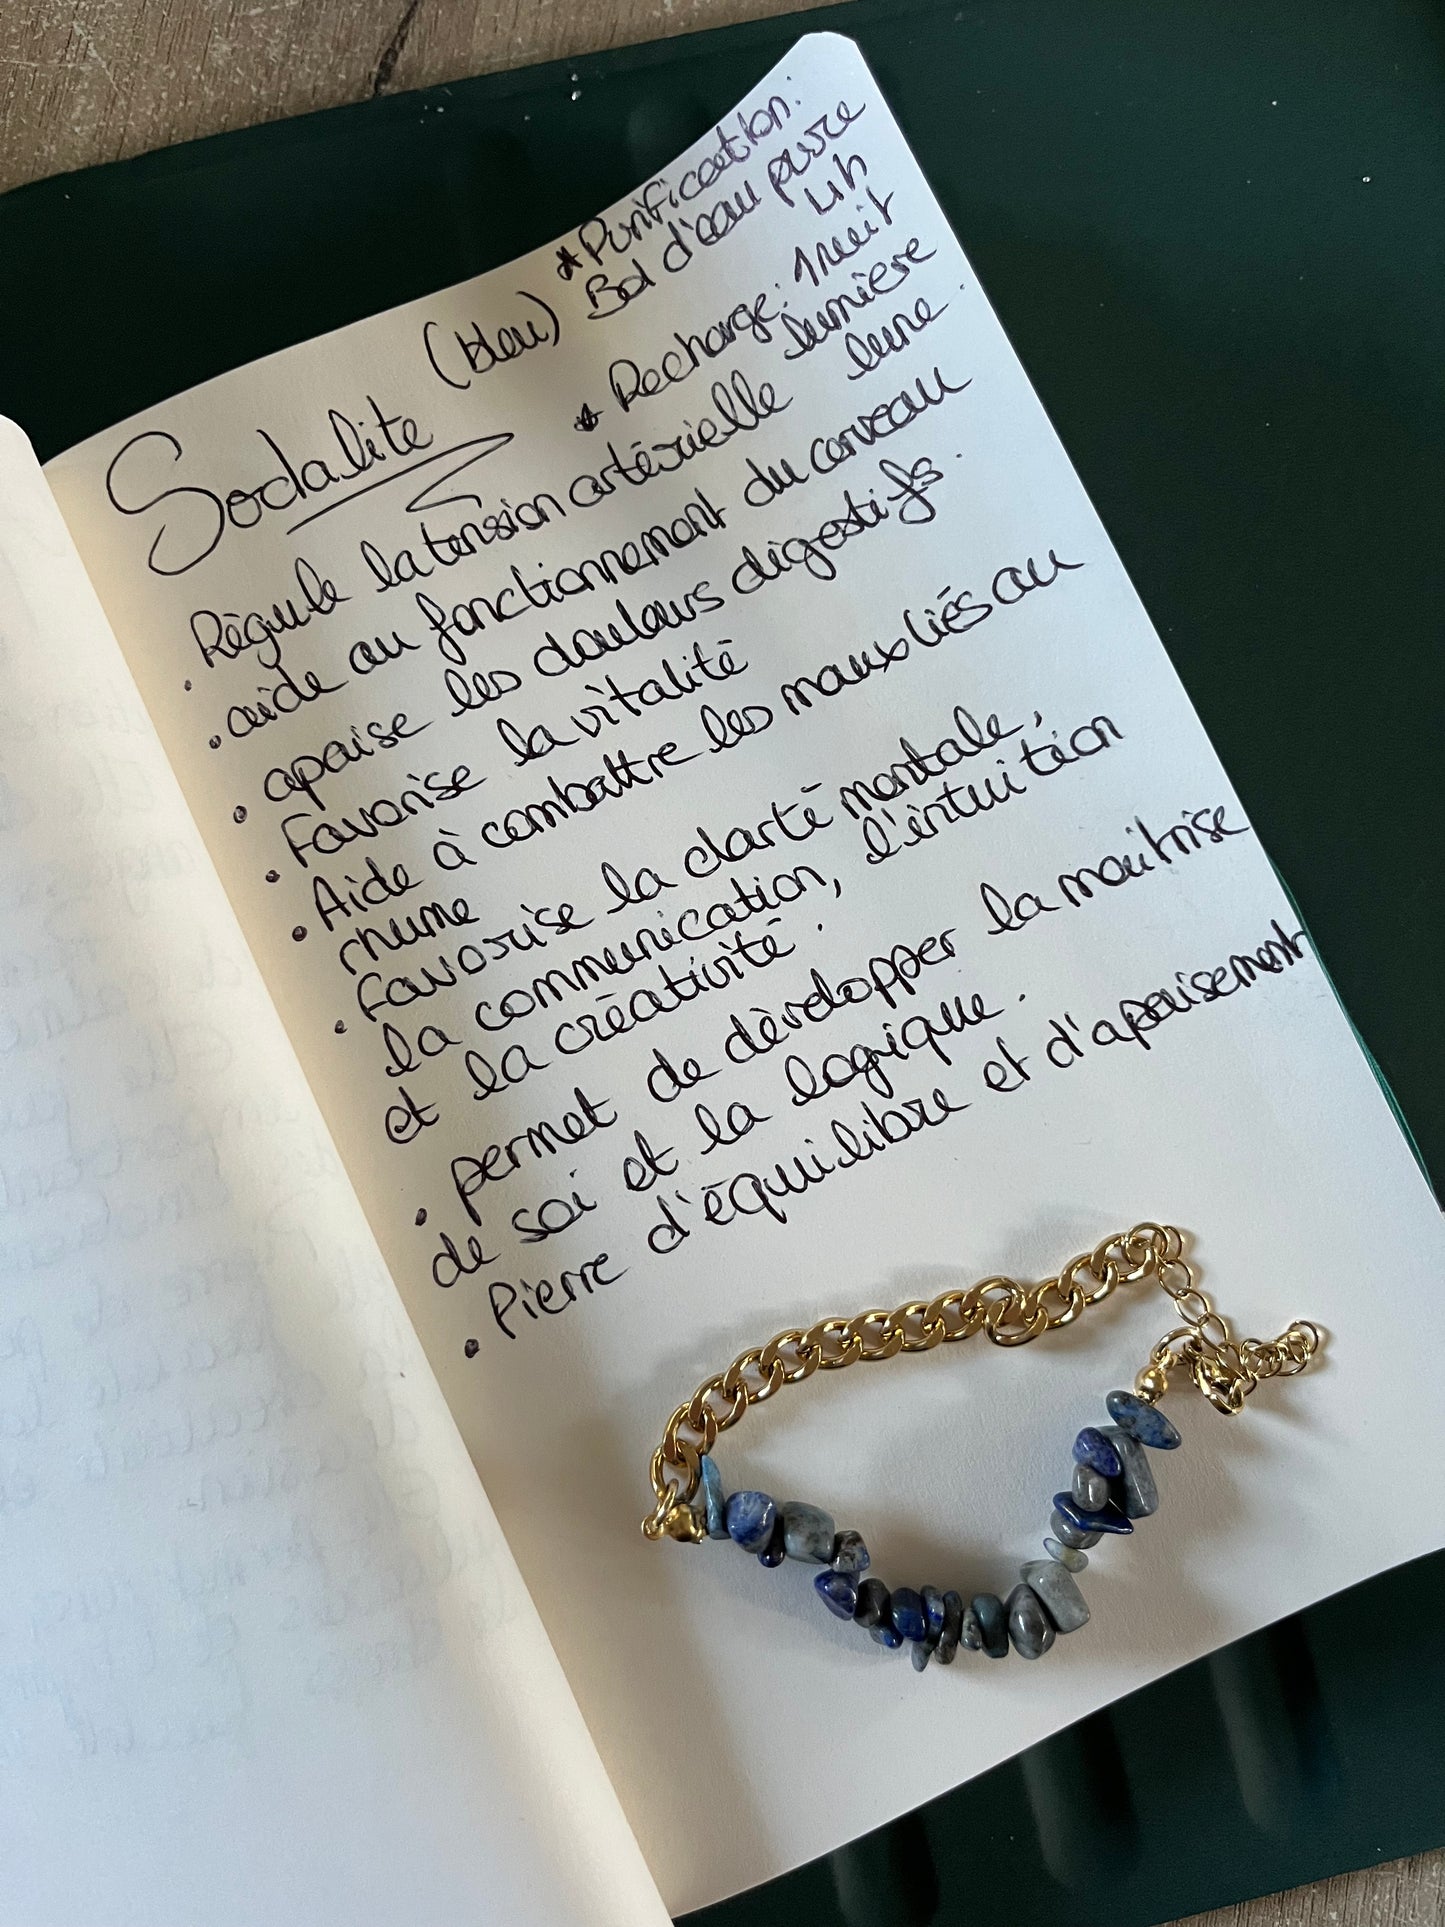 Sodalite (bleu)
* Purification:
Bol d'eau pure
4h
* Recharge: 1 nuit
lumière
lune.
. Régule la tension artérielle
. aide au fonctionnement du cerveau
. apaise les douleurs digestifs.
. Favorise la vitalité
. Aide à combattre les maux liés au
rhume
. Favorise la clarté mentale,
la communication, l'intuition
et la créativité.
. permet de développer la maitrise
de soi et la logique.
. Pierre d'équilibre et d'apaisement